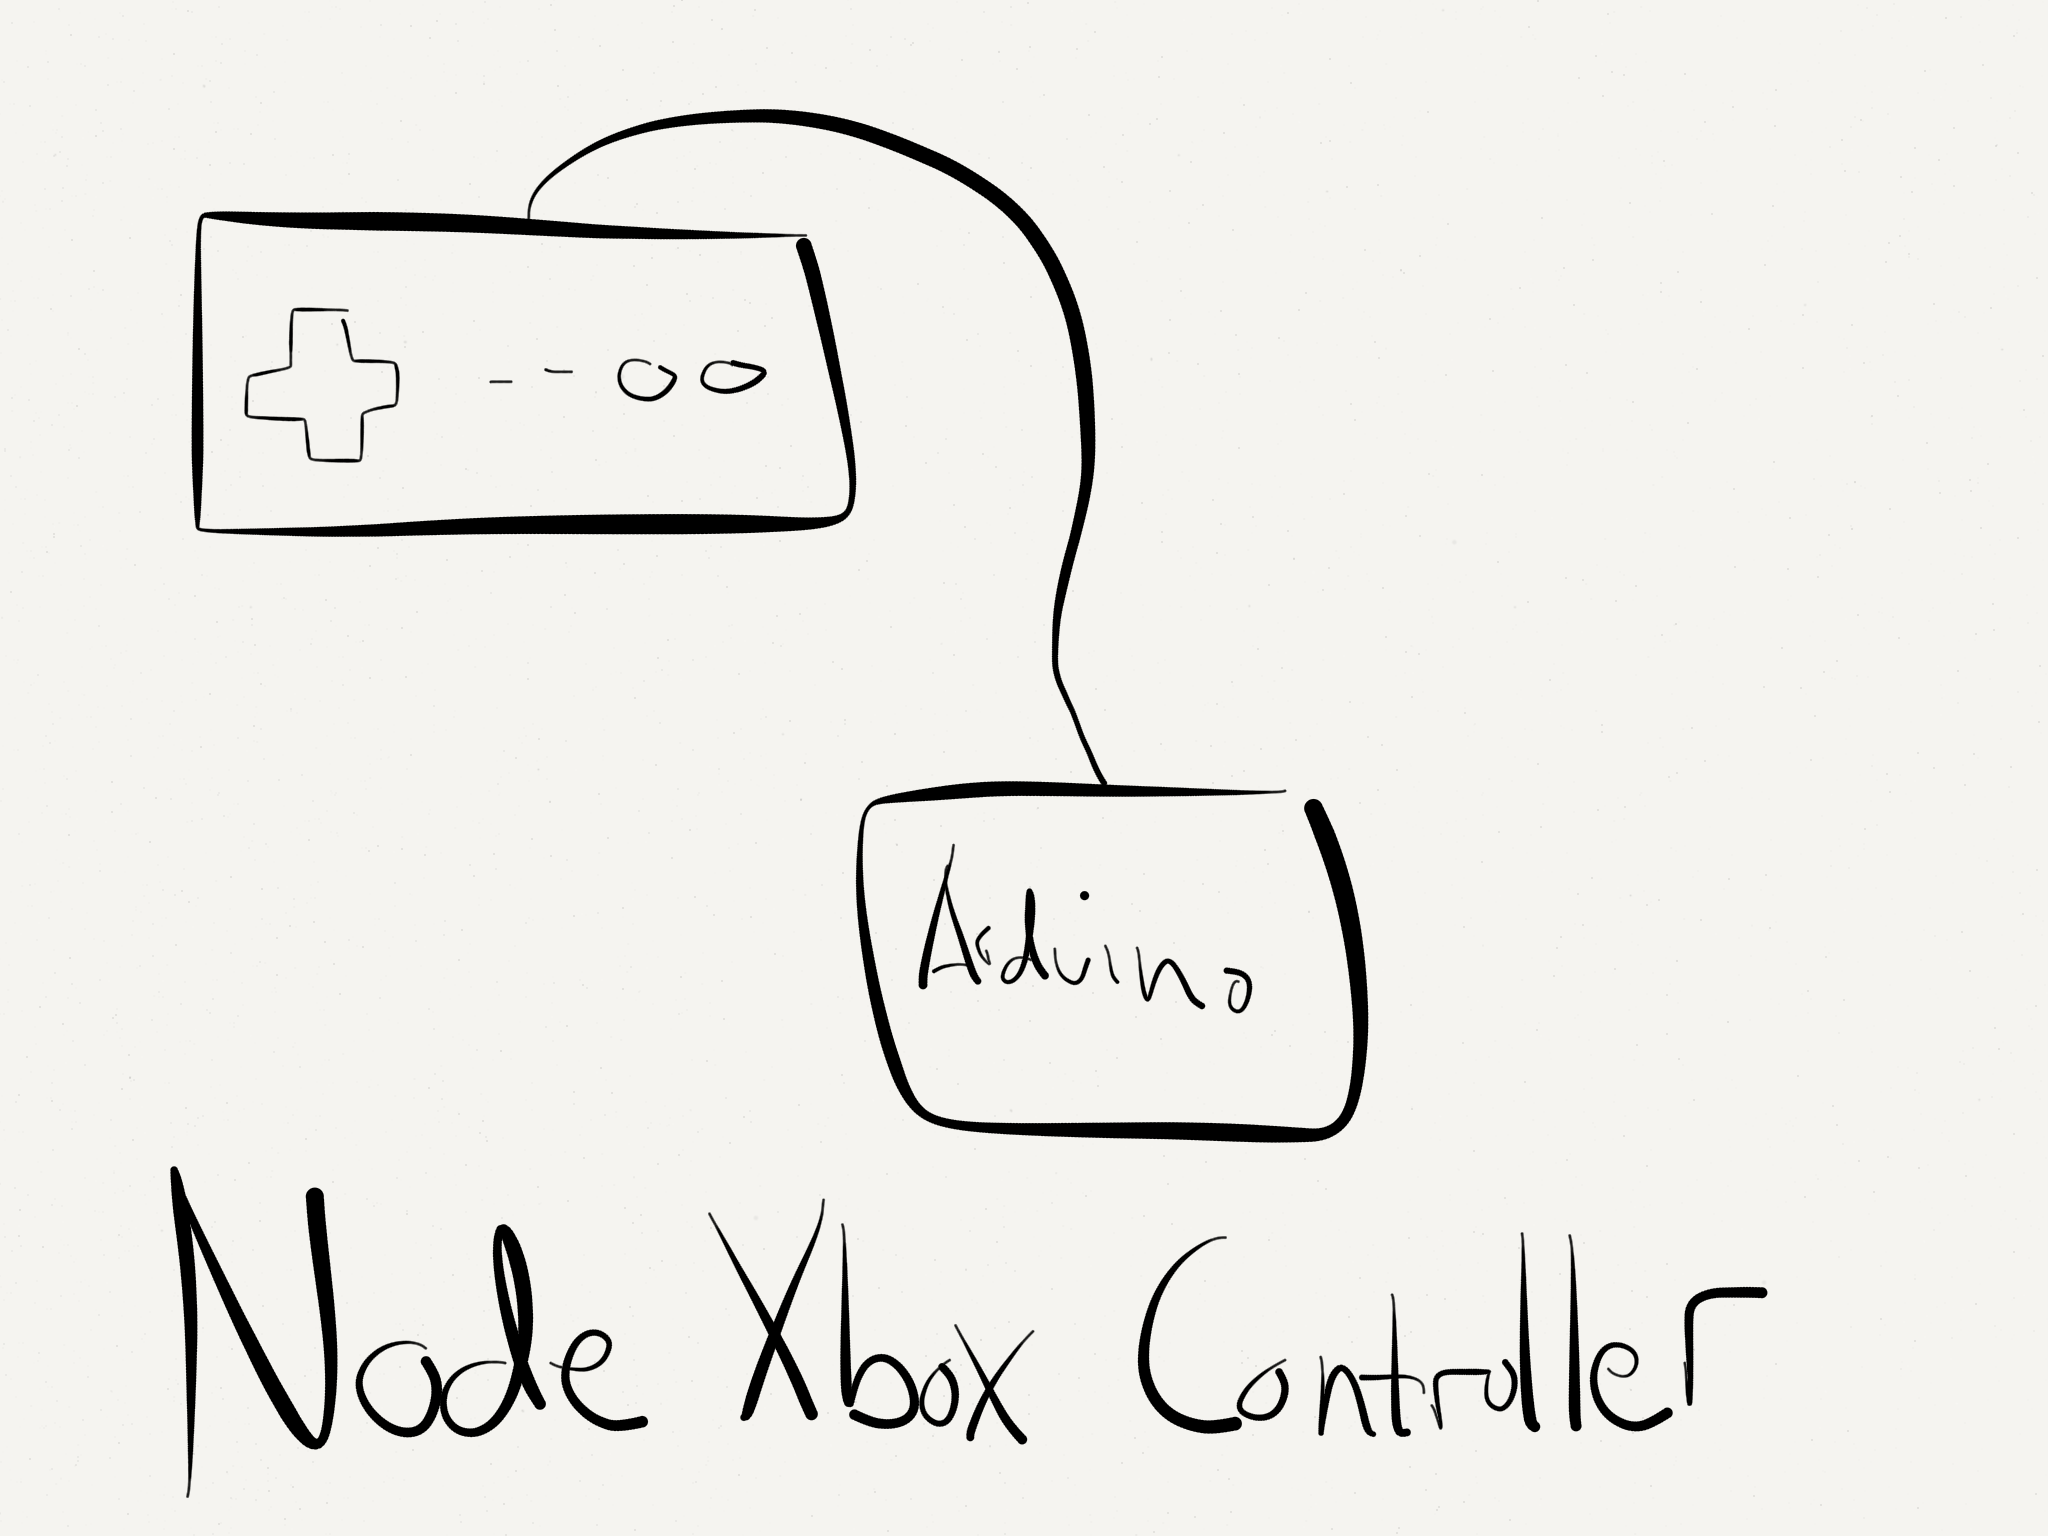 Arduino
Node Xbox Controller